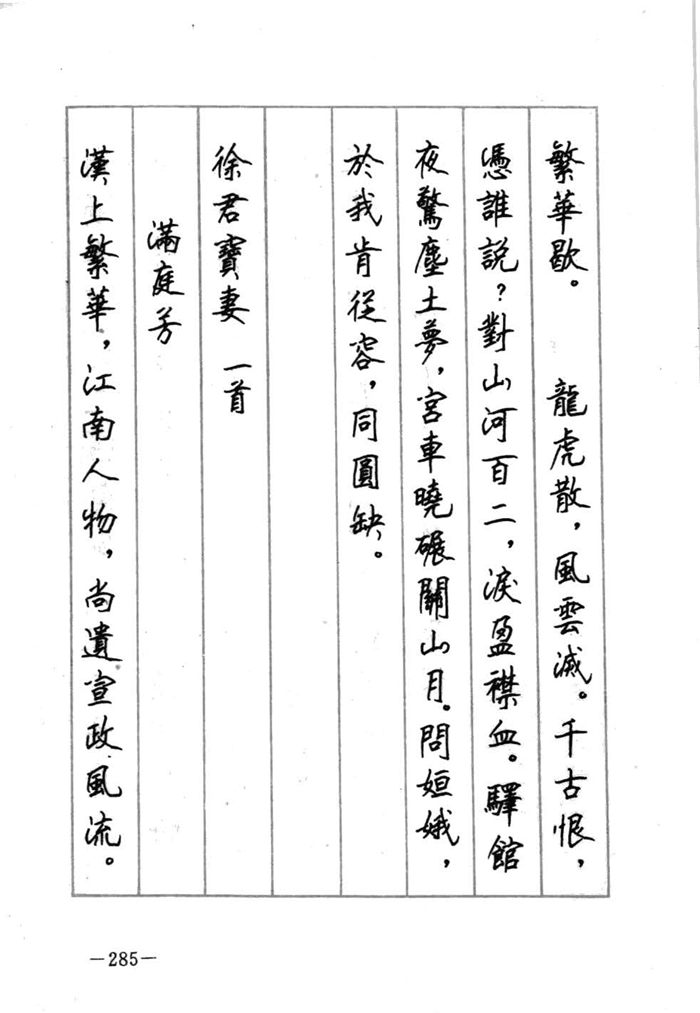 繁華歇。　龍虎散，風雲滅。千古恨，
憑誰説？對山河百二，淚盈襟血。驛館
夜驚塵土夢，宮車曉碾關山月。問姮娥，
於我肯從容，同圓缺。
徐君寶妻　一首
滿庭芳
漢上繁華，江南人物，尚遺宣政風流。
—285—